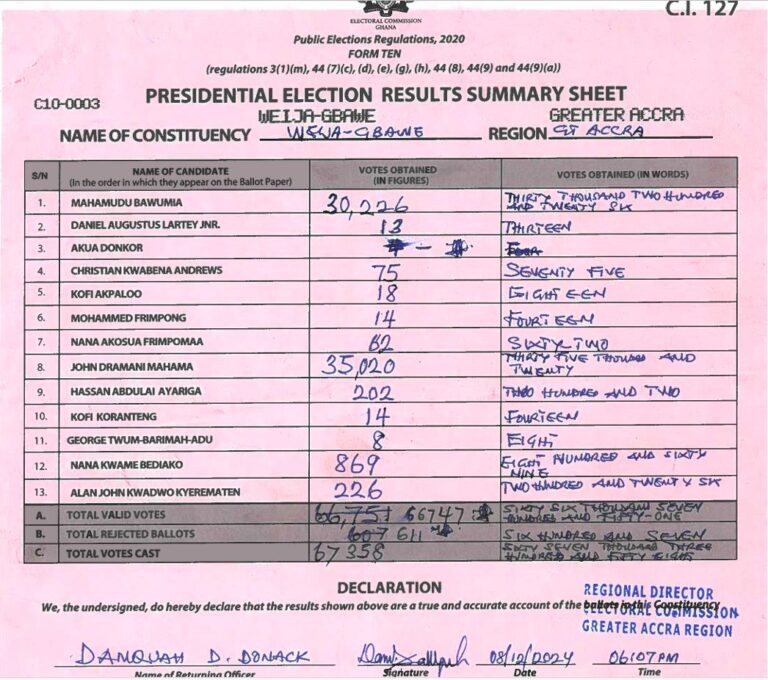 C.I. 127
ELECTORAL COMMISSION
GHANA
Public Elections Regulations, 2020
FORM TEN
(regulations 3(1)(m), 44 (7)(c), (d), (e), (g), (h), 44 (8), 44(9) and 44(9)(a))
C10-0003 PRESIDENTIAL ELECTION RESULTS SUMMARY SHEET
WEIJA-GBAWE GREATER ACCRA
NAME OF CONSTITUENCY WEIJA-GBAWE REGION GT ACCRA
S/N NAME OF CANDIDATE (In the order in which they appear on the Ballot Paper) VOTES OBTAINED (IN FIGURES) VOTES OBTAINED (IN WORDS)
1. MAHAMUDU BAWUMIA 30,226 THIRTY THOUSAND TWO HUNDRED AND TWENTY SIX
2. DANIEL AUGUSTUS LARTEY JNR. 13 THIRTEEN
3. AKUA DONKOR -
4. CHRISTIAN KWABENA ANDREWS 75 SEVENTY FIVE
5. KOFI AKPALOO 18 EIGHTEEN
6. MOHAMMED FRIMPONG 14 FOURTEEN
7. NANA AKOSUA FRIMPOMAA 62 SIXTY TWO
8. JOHN DRAMANI MAHAMA 35,020 THIRTY FIVE THOUSAND AND TWENTY
9. HASSAN ABDULAI AYARIGA 202 TWO HUNDRED AND TWO
10. KOFI KORANTENG 14 FOURTEEN
11. GEORGE TWUM-BARIMAH-ADU 8 EIGHT
12. NANA KWAME BEDIAKO 869 EIGHT HUNDRED AND SIXTY NINE
13. ALAN JOHN KWADWO KYEREMATEN 226 TWO HUNDRED AND TWENTY SIX
A. TOTAL VALID VOTES 66,751 66747 SIXTY SIX THOUSAND SEVEN HUNDRED AND FIFTY-ONE
B. TOTAL REJECTED BALLOTS 607 611 SIX HUNDRED AND SEVEN
C. TOTAL VOTES CAST 67358 SIXTY SEVEN THOUSAND THREE HUNDRED AND FIFTY EIGHT
DECLARATION
We, the undersigned, do hereby declare that the results shown above are a true and accurate account of the ballots in this Constituency
REGIONAL DIRECTOR
ELECTORAL COMMISSION
GREATER ACCRA REGION
DANQUAH D. DONACK 08/12/2024 06:07PM
Name of Returning Officer Signature Date Time